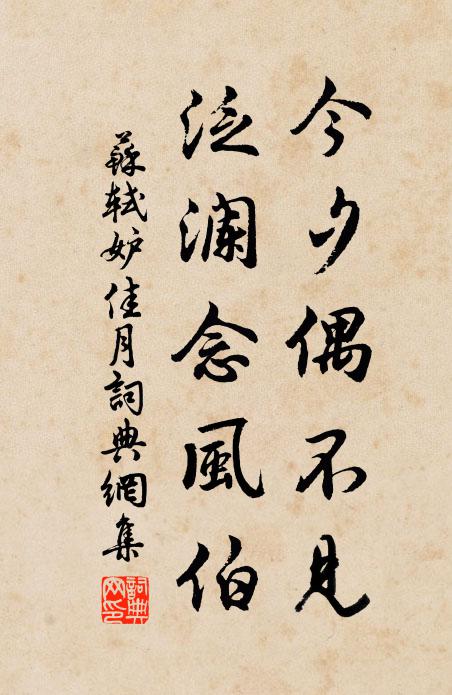 今夕偶不見
泛瀾念風伯
蘇軾妒佳月詞典網集
詞典网印